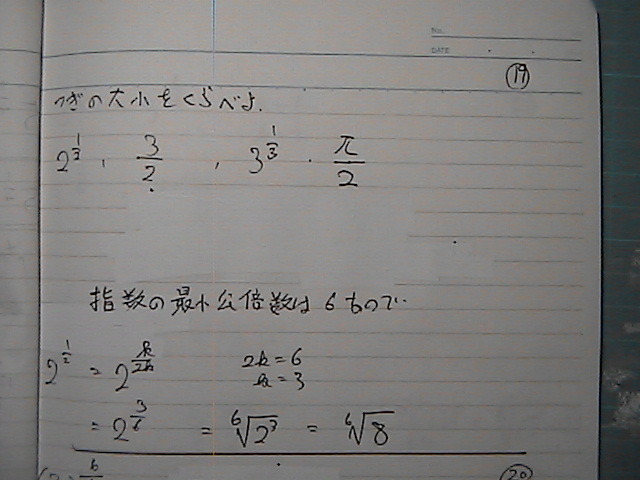 No.
DATE
19
つぎの大小をくらべよ.
2^{1/2} , 3/2 , 3^{1/3} . π/2
指数の最小公倍数は6なので
2^{1/2} = 2^{k/2k} 2k=6
k=3
= 2^{3/6} = ⁶√2³ = ⁶√8
20